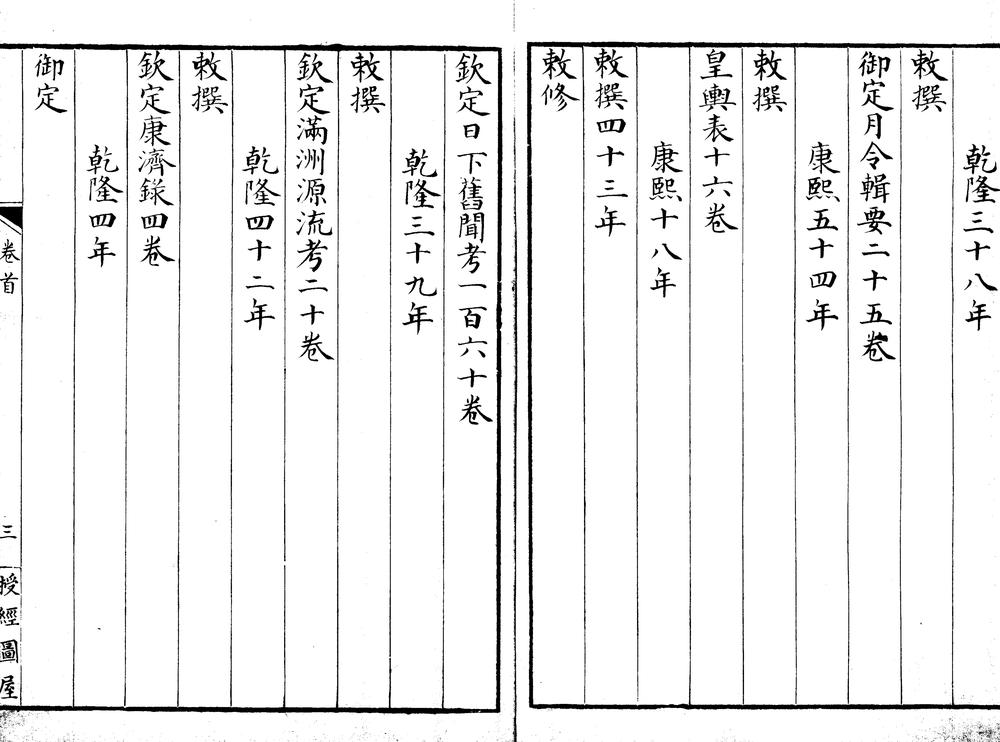 乾隆三十八年
敕撰
御定月令輯要二十五卷
康熙五十四年
敕撰
皇輿表十六卷
康熙十八年
敕撰四十三年
敕修
欽定日下舊聞考一百六十卷
乾隆三十九年
敕撰
欽定滿洲源流考二十卷
乾隆四十二年
敕撰
欽定康濟錄四卷
乾隆四年
御定
卷首
三
授經圖屋